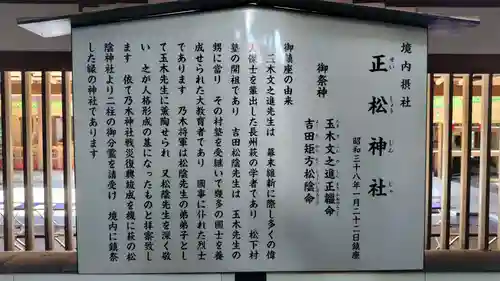 境内摂社
正松神社
せいしょうじんじゃ
昭和三十八年一月二十二日鎮座
御祭神
玉木文之進正韞命
吉田矩方松陰命
御鎮座の由来
玉木文之進先生は 幕末維新に際し多くの偉
人傑士を輩出した長州萩の学者であり 松下村
塾の開祖であり 吉田松陰先生は 玉木先生の
甥に当り その村塾を受継いで幾多の國士を養
成せられた大教育者であり 國事に仆れた烈士
であります 乃木将軍は松陰先生の弟弟子とし
て玉木先生に薫陶せられ 又松陰先生を深く敬
い 之が人格形成の基になったものと拝察致し
ます 依て乃木神社戦災復興竣成を機に萩の松
陰神社より二柱の御分霊を請受け 境内に鎮祭
した縁の神社であります